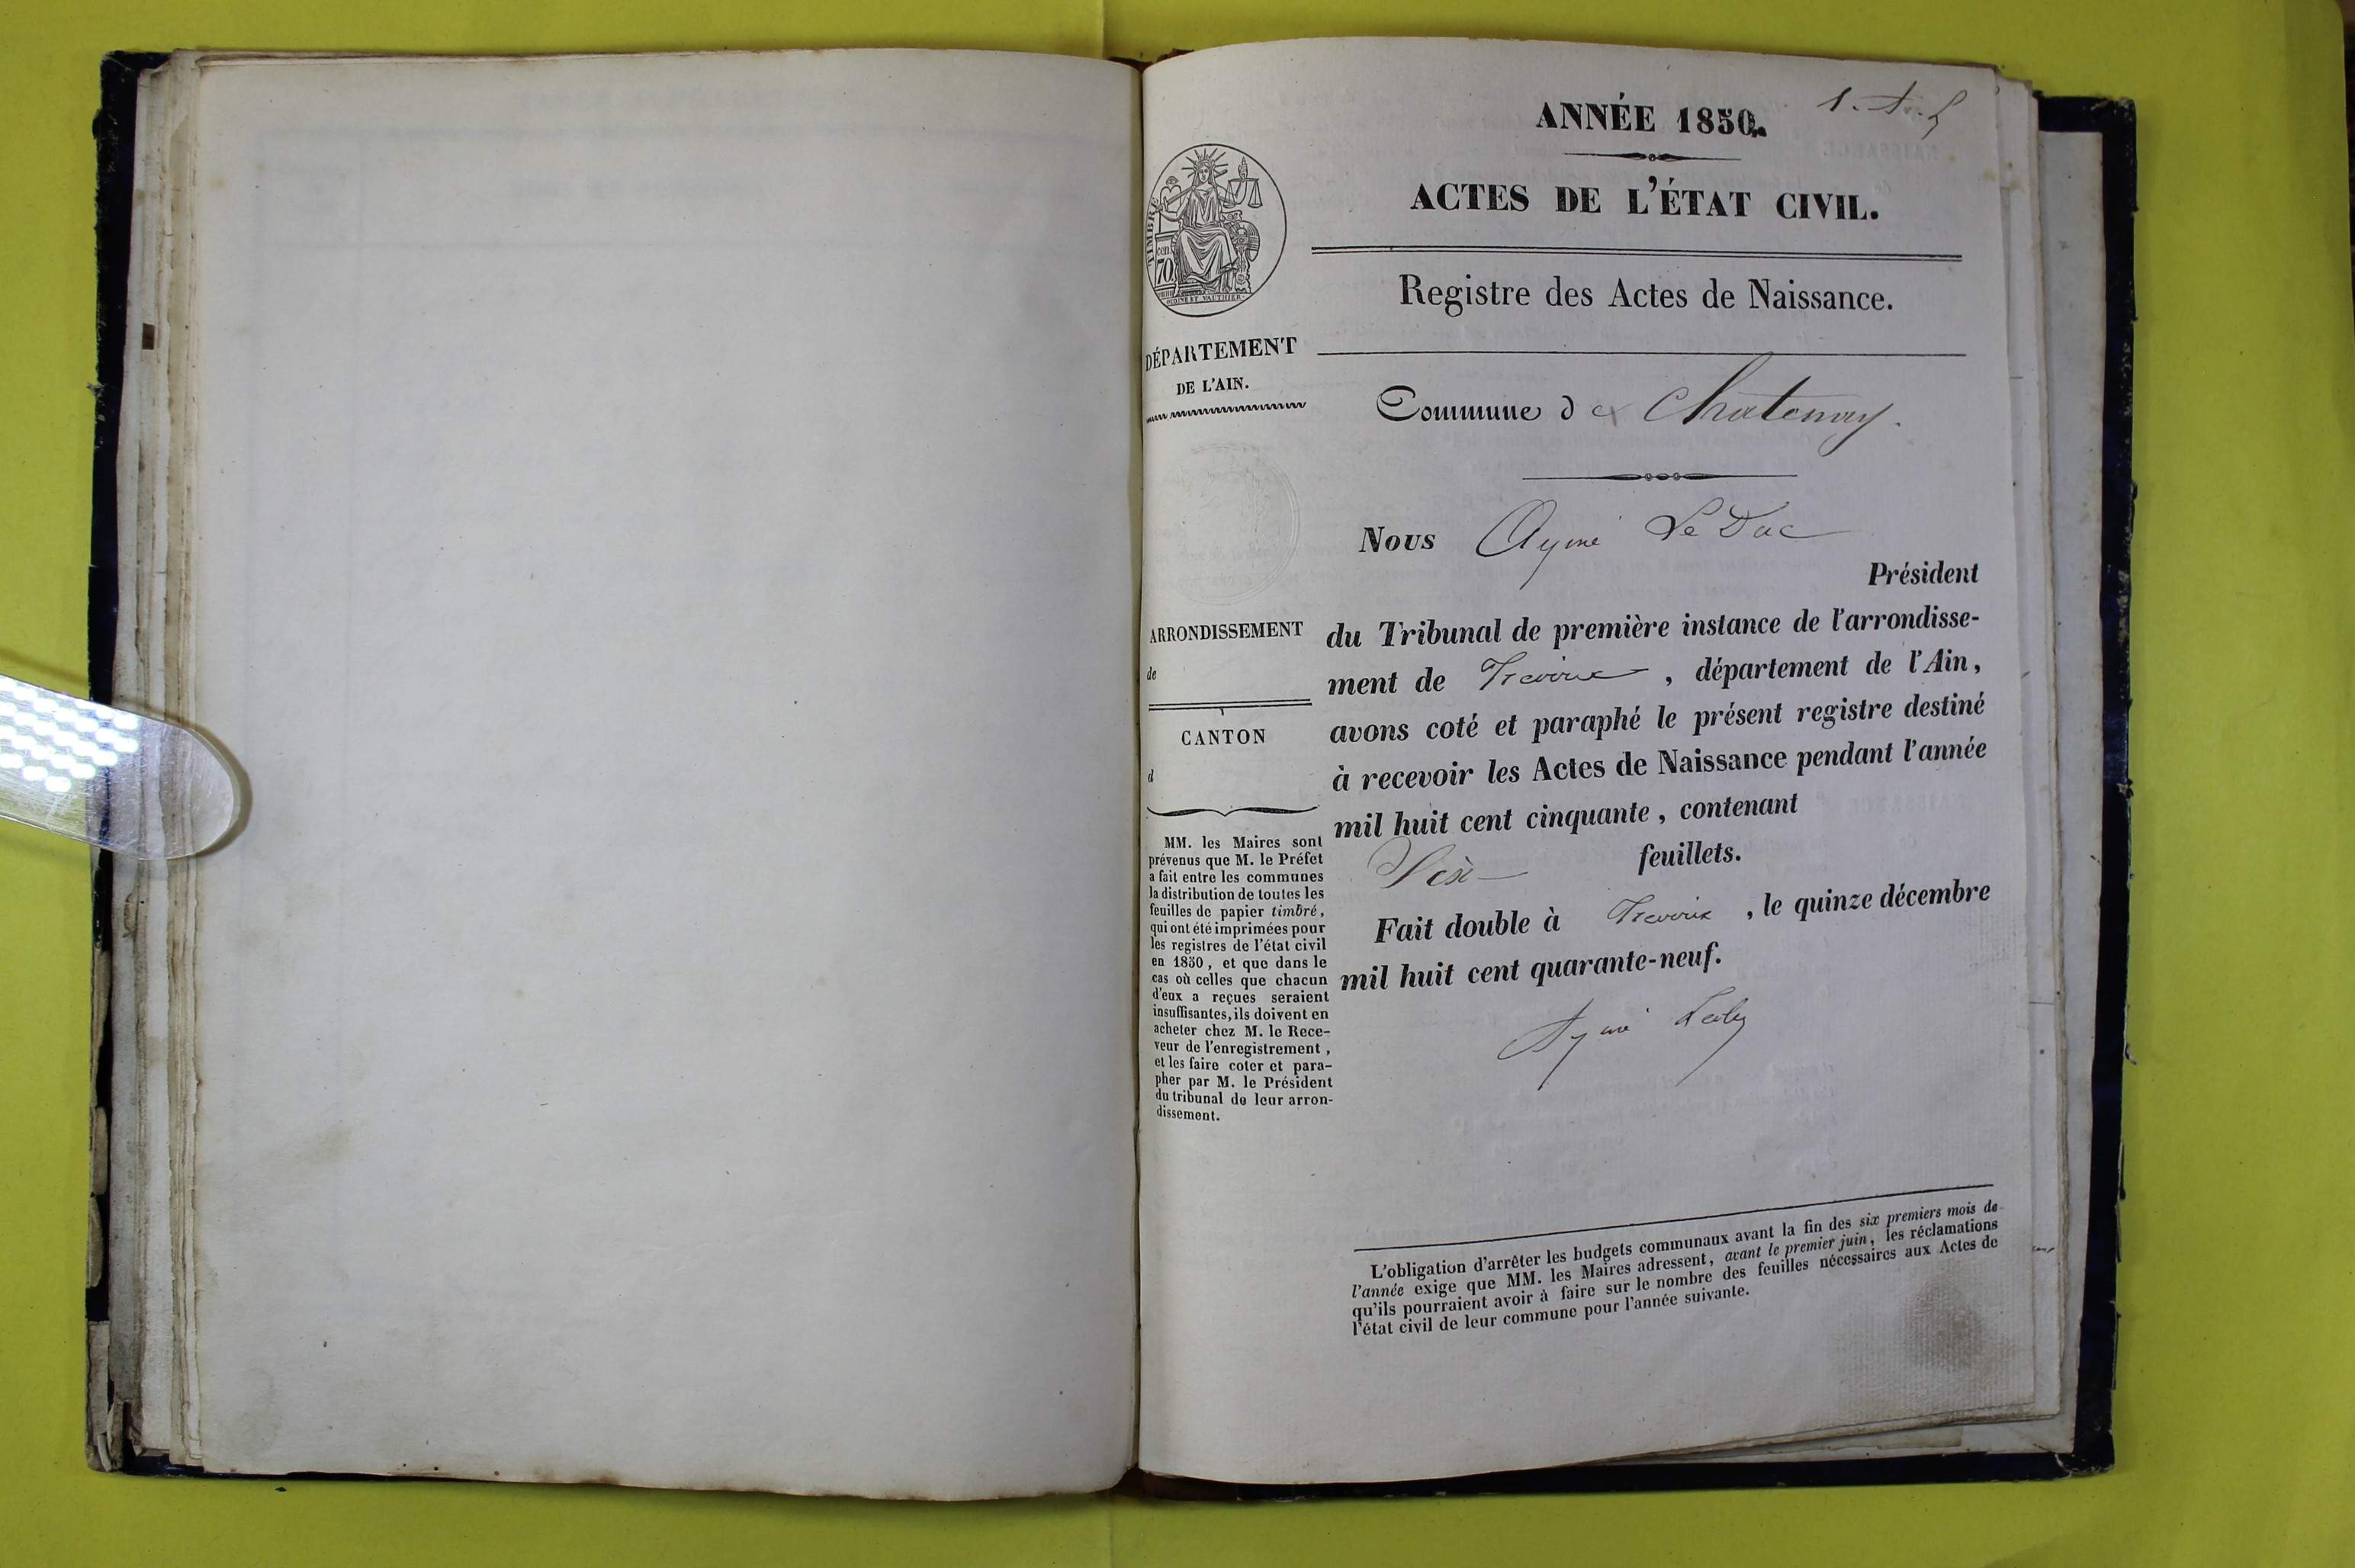 1.
ANNÉE 1850.
ACTES DE L'ÉTAT CIVIL.
TIMBRE
70
Registre des Actes de Naissance.
DÉPARTEMENT
DE L'AIN.
Commune de Chatenay.
Nous Aymé Le Duc
Président
du Tribunal de première instance de l'arrondisse-
ment de Trevoux, département de l'Ain,
avons coté et paraphé le présent registre destiné
à recevoir les Actes de Naissance pendant l'année
mil huit cent cinquante, contenant
feuillets.
Fait double à Trevoux, le quinze décembre
mil huit cent quarante-neuf.
Aymé Leduc
ARRONDISSEMENT
de
CANTON
d
MM. les Maires sont
prévenus que M. le Préfet
a fait entre les communes
la distribution de toutes les
feuilles de papier timbré,
qui ont été imprimées pour
les registres de l'état civil
en 1850, et que dans le
cas où celles que chacun
d'eux a reçues seraient
insuffisantes, ils doivent en
acheter chez M. le Rece-
veur de l'enregistrement,
et les faire coter et para-
pher par M. le Président
du tribunal de leur arron-
dissement.
L'obligation d'arrêter les budgets communaux avant la fin des six premiers mois de
l'année exige que MM. les Maires adressent, avant le premier juin, les réclamations
qu'ils pourraient avoir à faire sur le nombre des feuilles nécessaires aux Actes de
l'état civil de leur commune pour l'année suivante.